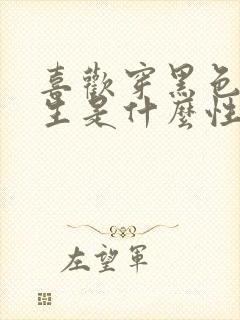 喜歡穿黑色
生是什麼性
左望軍